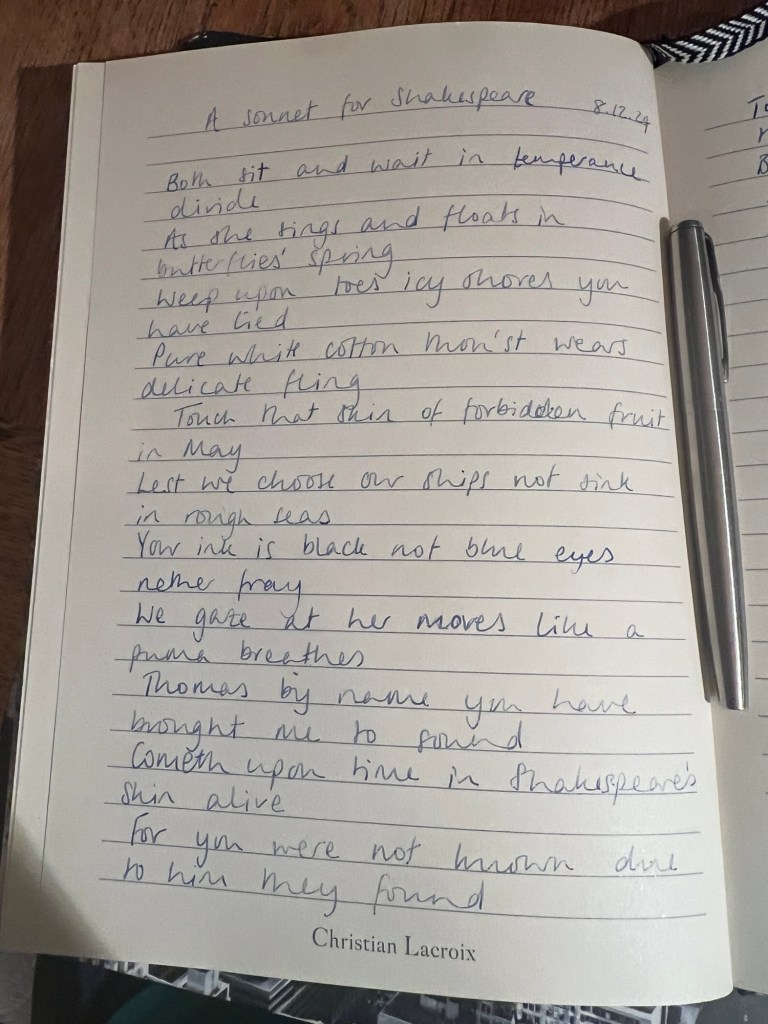 A sonnet for Shakespeare 8.12.24
Both sit and wait in temperance
divide
As she sings and floats in
butterflies' spring
Weep upon toes' icy shores you
have lied
Pure white cotton thon'st wears
delicate fling
Touch that skin of forbidden fruit
in May
Lest we choose our ships not sink
in rough seas
Your ink is black not blue eyes
nether fray
We gaze at her moves like a
puma breathes
Thomas by name you have
brought me to sound
Cometh upon time in Shakespeare's
skin alive
For you were not known due
to him they found
Christian Lacroix
To
B